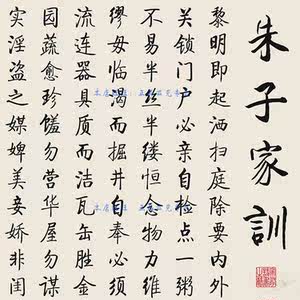 朱子家訓
黎明即起洒扫庭除要内外
关锁门户必亲自检点一粥
不易半丝半缕恒念物力维
缪毋临渴而掘井自奉必须
流连器具质而洁瓦缶胜金
园蔬愈珍馐勿营华屋勿谋
实淫盗之媒婢美妾娇非闺